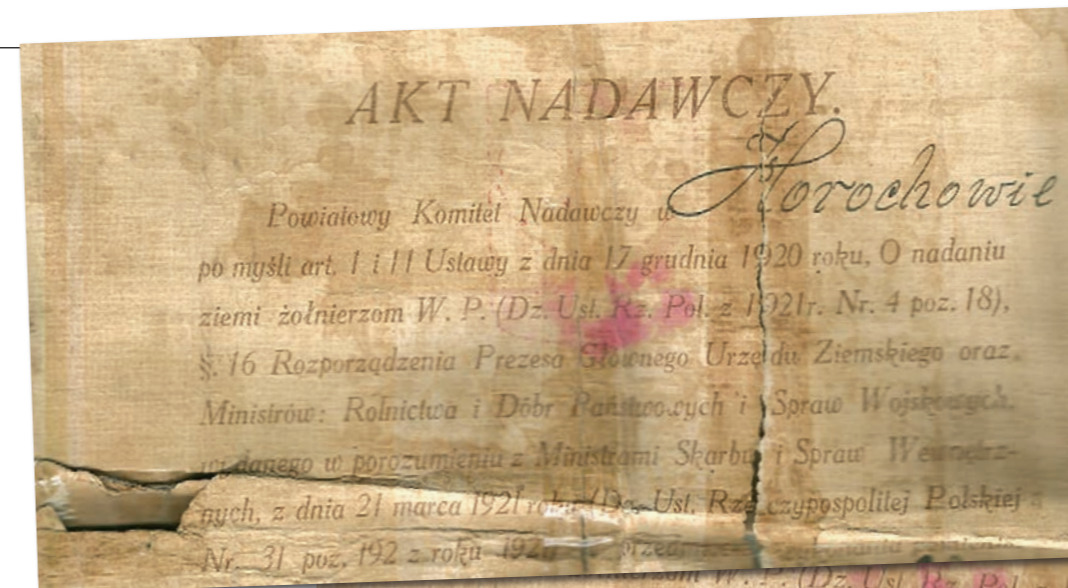 AKT NADAWCZY.
Powiatowy Komitet Nadawczy w Horochowie
po myśli art. I i II Ustawy z dnia 17 grudnia 1920 roku, O nadaniu
ziemi żołnierzom W. P. (Dz. Ust. Rz. Pol. z 1921r. Nr. 4 poz. 18),
§. 16 Rozporządzenia Prezesa Głównego Urzędu Ziemskiego oraz
Ministrów: Rolnictwa i Dóbr Państwowych i Spraw Wojskowych,
wydanego w porozumieniu z Ministrami Skarbu i Spraw Wewnętrz-
nych, z dnia 21 marca 1921 roku (Dz. Ust. Rzeczypospolitej Polskiej
Nr. 31 poz. 192 z roku 1921)
W. P. (Dz. Ust. Rz.